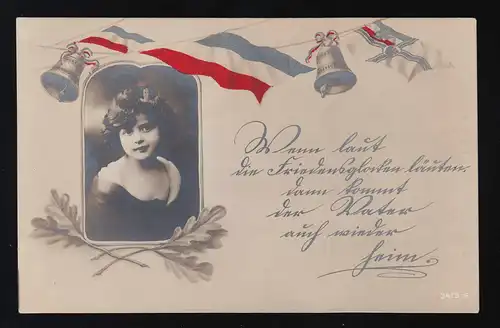 Wenn laut
die Friedensglocken läuten,
dann kommt
der Vater
auch wieder
heim.